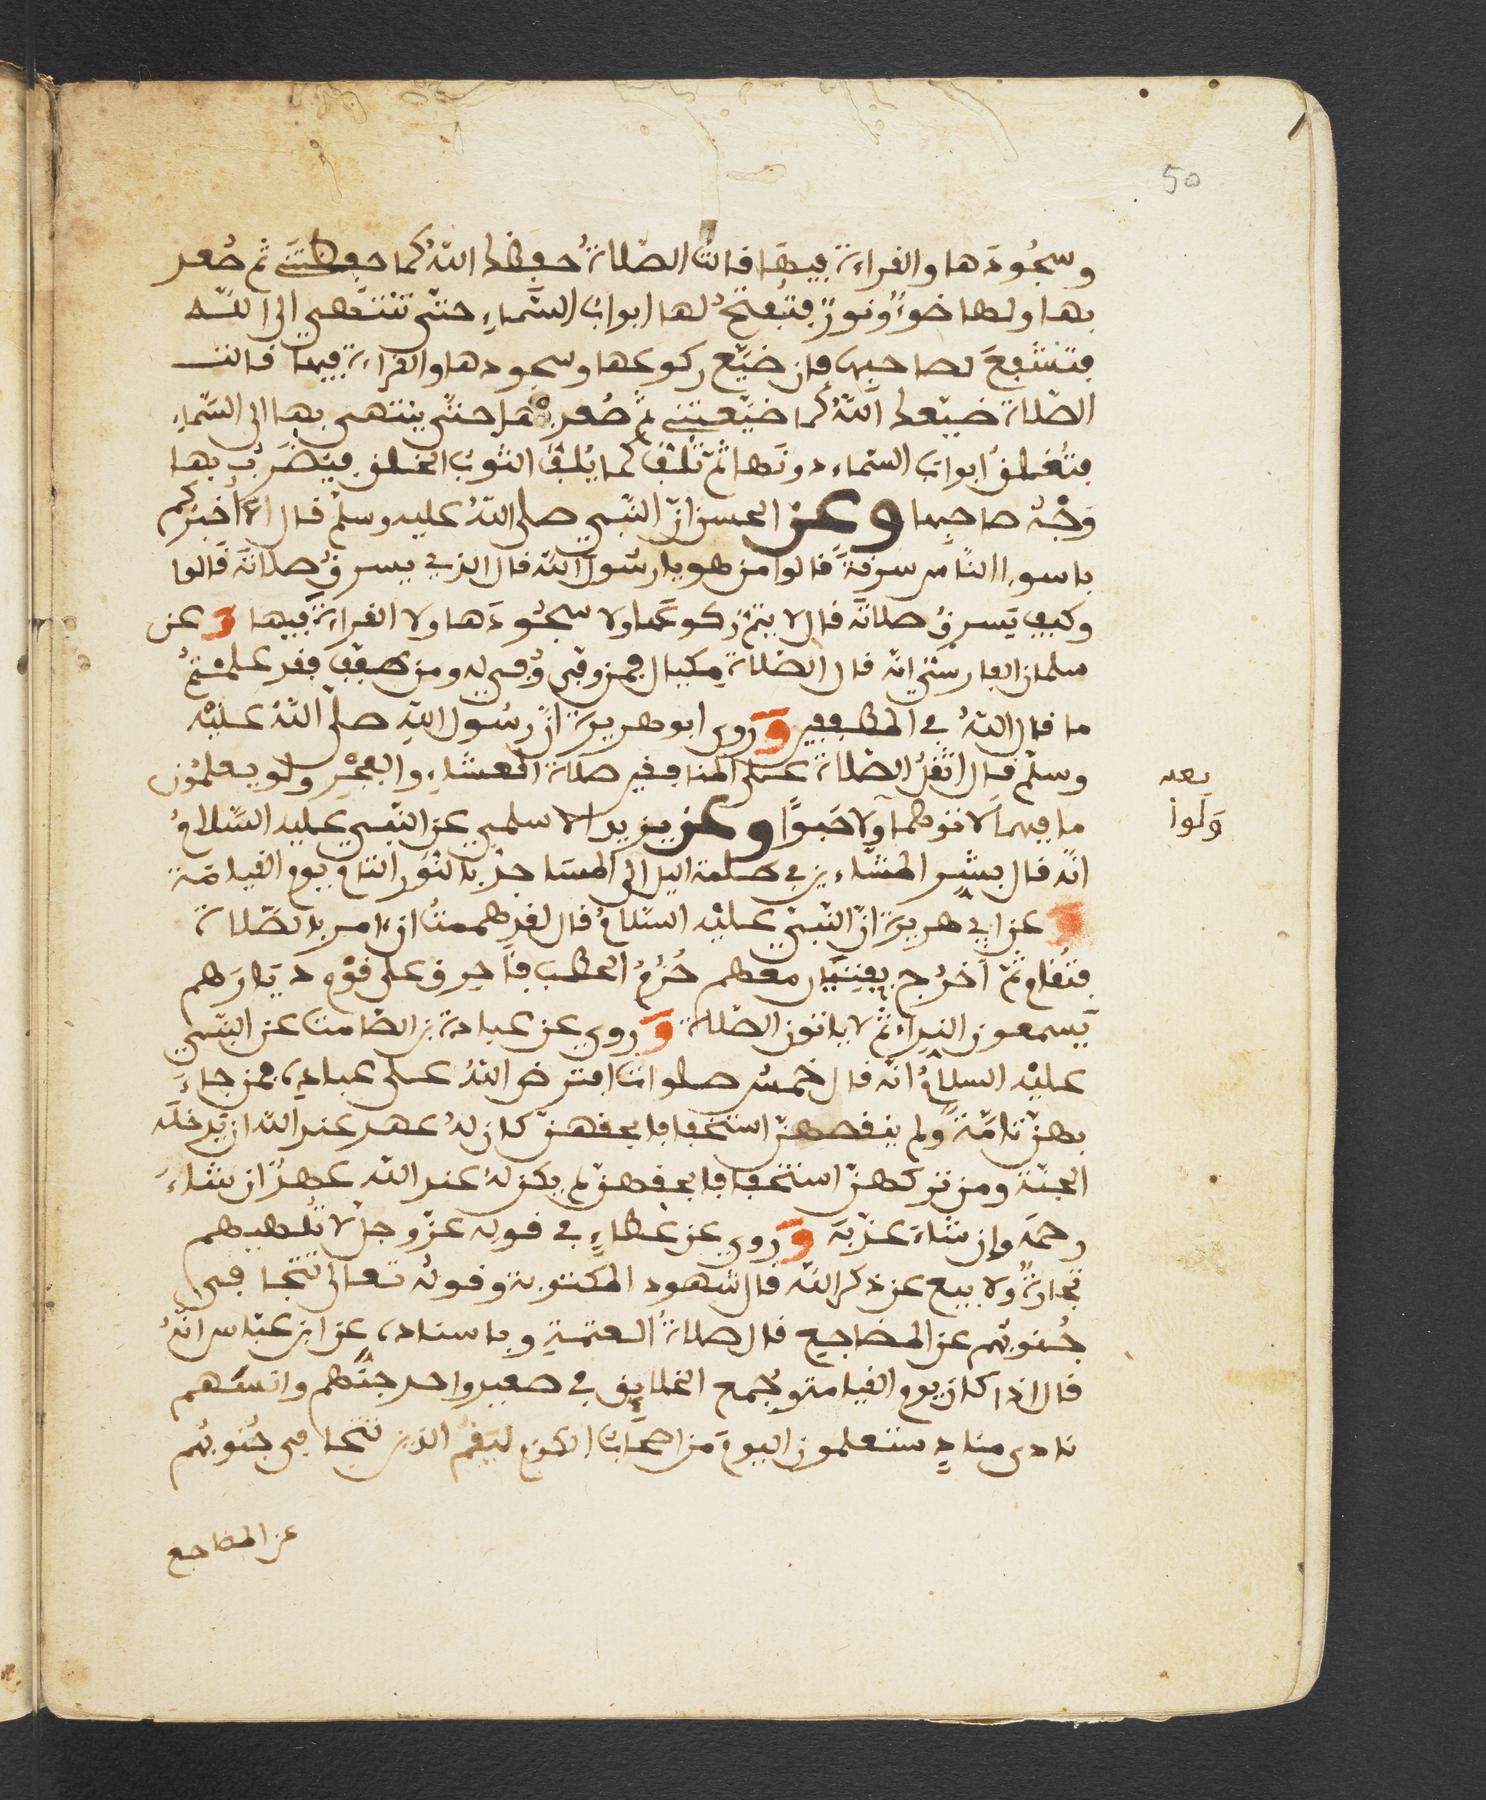 50
وسجُودَها والقراءة فيها قالت الصّلاةُ حفظك اللهُ كما حفظتني ثم صُعد
بها ولها ضوءٌ ونورٌ فتُفتحُ لها ابواب السّماءِ حتّى تنتهي الى الله
فتشفعَ لصاحبها فان ضيّع ركوعها وسجودها والقراءة فيها قالت
الصّلاة ضيّعك اللهُ كما ضيّعتني ثم صُعد بها حتّى ينتهى بها الى السّماءِ
فتُغلقُ ابواب السّماء دونَها ثمّ تُلَفّ كما يُلفّ الثوبُ الخلق فيُضربُ بها
وَجْهُ صاحبها وعن الحسن انّ النّبي صلى اللهُ عليه وسلم قال الا أخبركم
باسوإ النّاس سرقةً قالوا من هو يا رسُول الله قال الذي يسرقُ صلاتَه قالوا
وكيف يَسرقُ صلاتَه قال لا يتمّ ركوعَها ولا سجُودَها ولا القراءةَ فيها وعن
سلمان الفارسي انّه قال الصّلاة مكيال فمن وفّى وُفي له ومن طفّف فقد علمتمُ
ما قال اللهُ في المطففين وَروى ابو هريرة انّ رسُول اللهِ صلّى اللهُ عليْه
وسلّم قال اثقلُ الصّلاة على المنافقين صلاة العشاءِ والفجْرِ ولو يعلمُون
ما فيهما لاتوهما ولا حَبوًا وعن بريدة الاسلمي عن النّبي عليه السّلامُ
انّه قال بشّر المشّاءين في ظلمة اليل الى المساجد بالنّور التام يوم القيامَة
و عن ابي هريرة انّ النّبيّ عليْه السّلامُ قال لقد هممتُ ان ءامر بالصّلاة
فتُقام ثمّ أخرُج بفتيان معهم حُزَمُ الحطب فأحرق على قوْم ديَارَهم
يَسمعون النداء ثم لا ياتون الصّلاة وَروي عن عبادة بن الصّامت عن النّبي
عليْه السلامُ انّه قال خمسُ صلوات افترض اللهُ على عباده فمن جاءَ
بهنّ تامّةً ولم ينقصهنّ استخفافا بحقهنّ كان لهُ عهد عند الله ان يُدخله
الجنّة ومن تركهنّ استخفافا بحقهنّ لم يكن لهُ عند الله عهدٌ ان شاءَ
رحمَه وان شاءَ عذّبهَ وَروي عن عطاءٍ في قوله عزّ وجلّ لا تُلهيهم
تجارةٌ ولا بيع عن ذكر الله قال شهود المكتوبة وقولُه تعالى تتجافى
جُنوبهم عن المضاجع قال صلاةُ العتمةِ وباسناده عن ابن عبّاس انّهُ
قال اذا كان يوم القيامة وجُمع الخلايق في صعيد واحد جنُّهم وانسُهم
نادى منادٍ ستعلمون اليومَ من اصحابُ الكرم ليَقم الذين تتجافى جُنوبُهم
عن المضاجع
يعد
وَلَوا